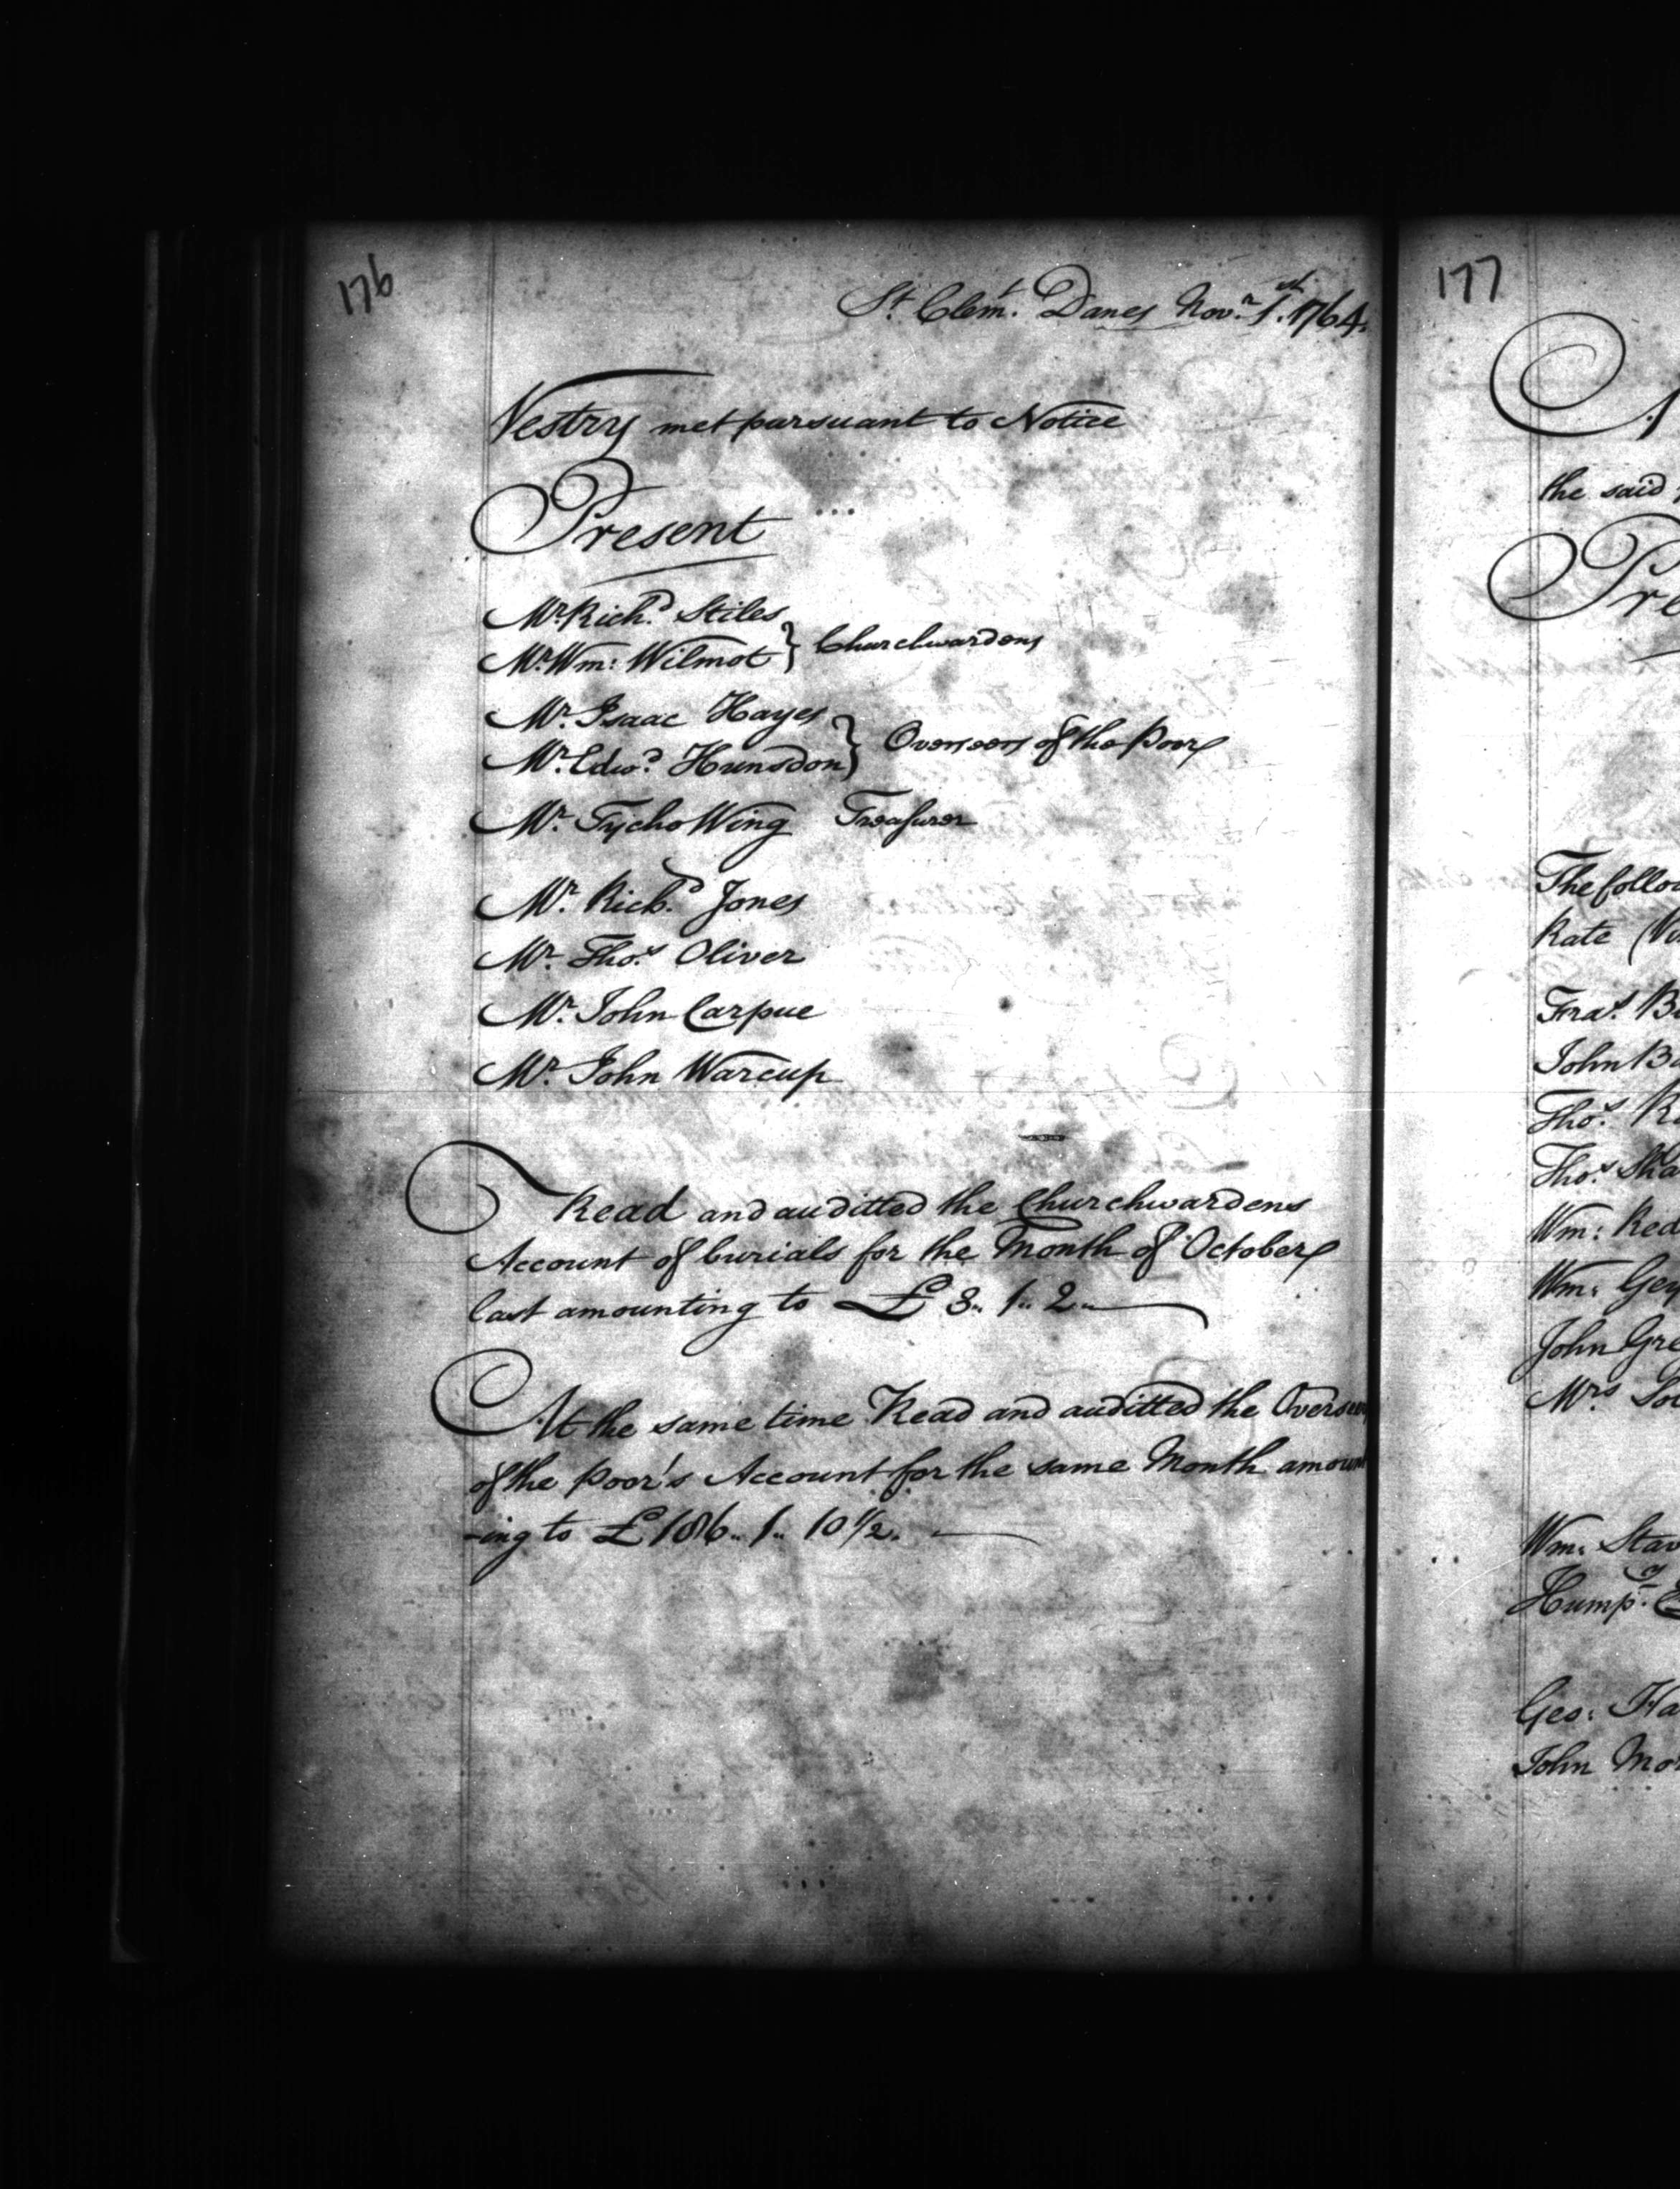 176
St. Clemt. Danes Novr. 1st. 1764.
Vestry met pursuant to Notice
Present
Mr. Richd. Stiles
Mr. Wm: Wilmot } Churchwardens
Mr. Isaac Hayes
Mr. Edwd. Hunsdon } Overseers of the Poor
Mr. Tycho Wing Treasurer
Mr. Richd. Jones
Mr. Thos. Oliver
Mr. John Carpue
Mr. John Warcup
Read and auditted the Churchwardens
Account of burials for the Month of October
last amounting to £ 3.. 1.. 2..
At the same time Read and auditted the Overseers
of the Poor's Account for the same Month amount
-ing to £ 186.. 1.. 10 1/2.
177
the said
Pre
The follow
Rate
Fras. B
John Ba
Thos. R
Thos. Sha
Wm: Red
Wm: Gey
John Gre
Mrs.
Wm: Stav
Humpy.
Geo: Ha
John Mor